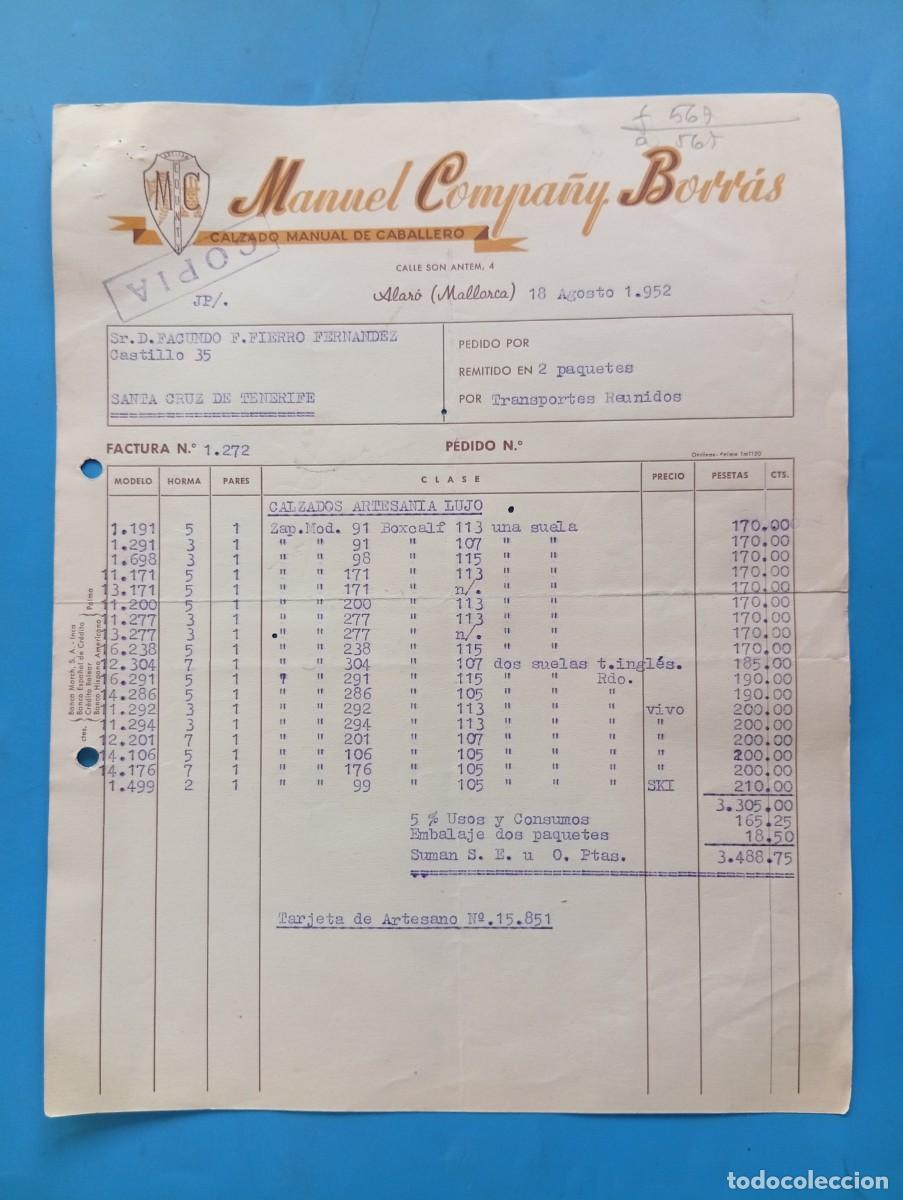 f 567
a 567
ARTISAN
COUNTY
M C
Manuel Compañy Borrás
CALZADO MANUAL DE CABALLERO
COPIA
CALLE SON ANTEM, 4
JP/. Alaró (Mallorca) 18 Agosto 1.952
Sr.D.FACUNDO F.FIERRO FERNANDEZ
Castillo 35
SANTA CRUZ DE TENERIFE
PEDIDO POR
REMITIDO EN 2 paquetes
POR Transportes Reunidos
FACTURA N.º 1.272 PEDIDO N.º
MODELO HORMA PARES CLASE PRECIO PESETAS CTS.
CALZADOS ARTESANIA LUJO
1.191 5 1 Zap.Mod. 91 Boxcalf 113 una suela 170.00
1.291 3 1 " " 91 " 107 " " 170.00
1.698 3 1 " " 98 " 115 " " 170.00
11.171 5 1 " " 171 " 113 " " 170.00
13.171 5 1 " " 171 " n/. " " 170.00
11.200 5 1 " " 200 " 113 " " 170.00
11.277 3 1 " " 277 " 113 " " 170.00
13.277 3 1 " " 277 " n/. " " 170.00
16.238 5 1 " " 238 " 115 " " 170.00
12.304 7 1 " " 304 " 107 dos suelas t.inglés. 185.00
16.291 5 1 " " 291 " 115 " " Rdo. 190.00
14.286 5 1 " " 286 " 105 " " " 190.00
11.292 3 1 " " 292 " 113 " " " vivo 200.00
11.294 3 1 " " 294 " 113 " " " " 200.00
12.201 7 1 " " 201 " 107 " " " " 200.00
14.106 5 1 " " 106 " 105 " " " " 200.00
14.176 7 1 " " 176 " 105 " " " " 200.00
1.499 2 1 " " 99 " 105 " " " SKI 210.00
3.305.00
5 % Usos y Consumos 165.25
Embalaje dos paquetes 18.50
Suman S. E. u O. Ptas. 3.488.75
Tarjeta de Artesano Nº.15.851
ctes.
Banca March, S. A. - Inca
Banco Español de Crédito
Crédito Balear
Banco Hispano Americano
Palma
todocoleccion